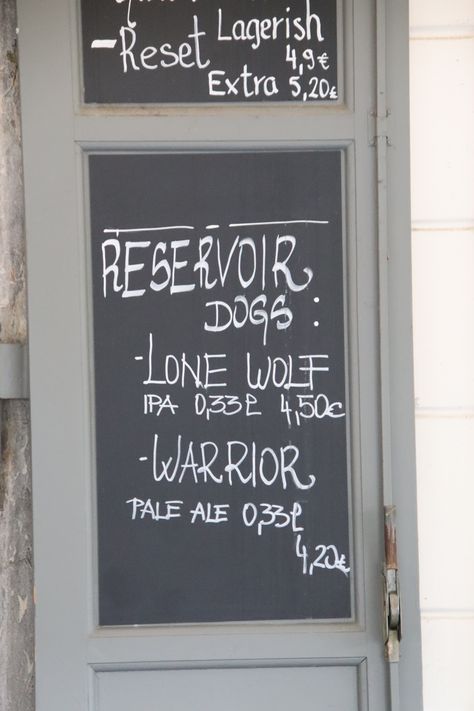 Lagerish
-Reset 4,9€
Extra 5,20€
RESERVOIR
DOGS :
-LONE WOLF
IPA 0,33l 4,50€
-WARRIOR
PALE ALE 0,33l
4,20€